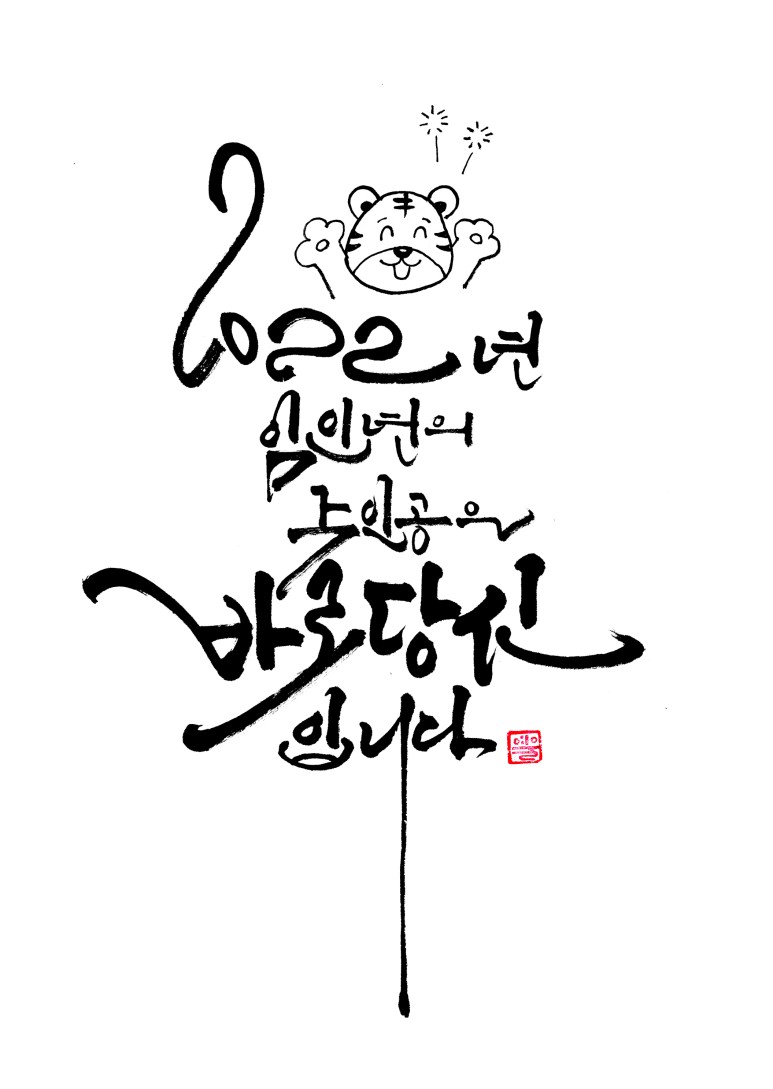 2022년
임인년의
주인공은
바로당신
입니다